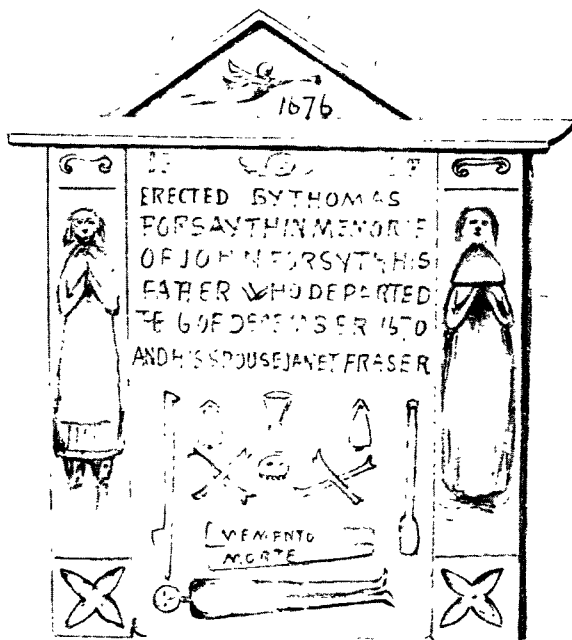 1676
ERECTED BY THOMAS
FORSAYTH IN MEMORIE
OF JOHN FORSYTH HIS
FATHER WHO DEPARTED
TE 6 OF DECEMBER 1670
AND HIS SPOUSE JANET FRASER
MEMENTO
MORTE